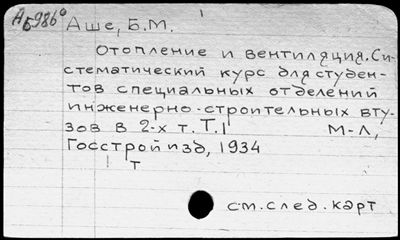 АБ986°
Аше, Б.М.
Отопление и вентиляция. Си-
стематический курс для студен-
тов специальных отделений
инженерно-строительных вту-
зов в 2-х т. Т. I М-Л,
Госстройизд, 1934
! т
см. след. карт